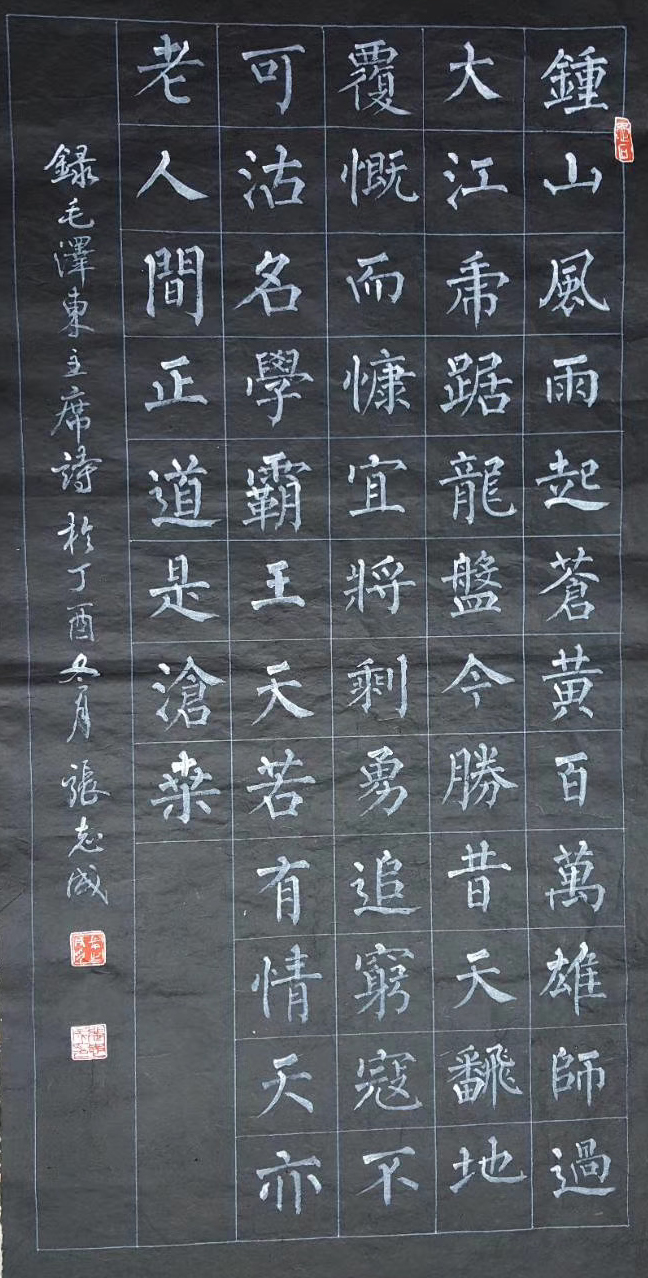 鍾山風雨起蒼黃百萬雄師過
大江虎踞龍盤今勝昔天翻地
覆慨而慷宜將剩勇追窮寇不
可沽名學霸王天若有情天亦
老人間正道是滄桑
録毛澤東主席詩於丁酉冬月張志成